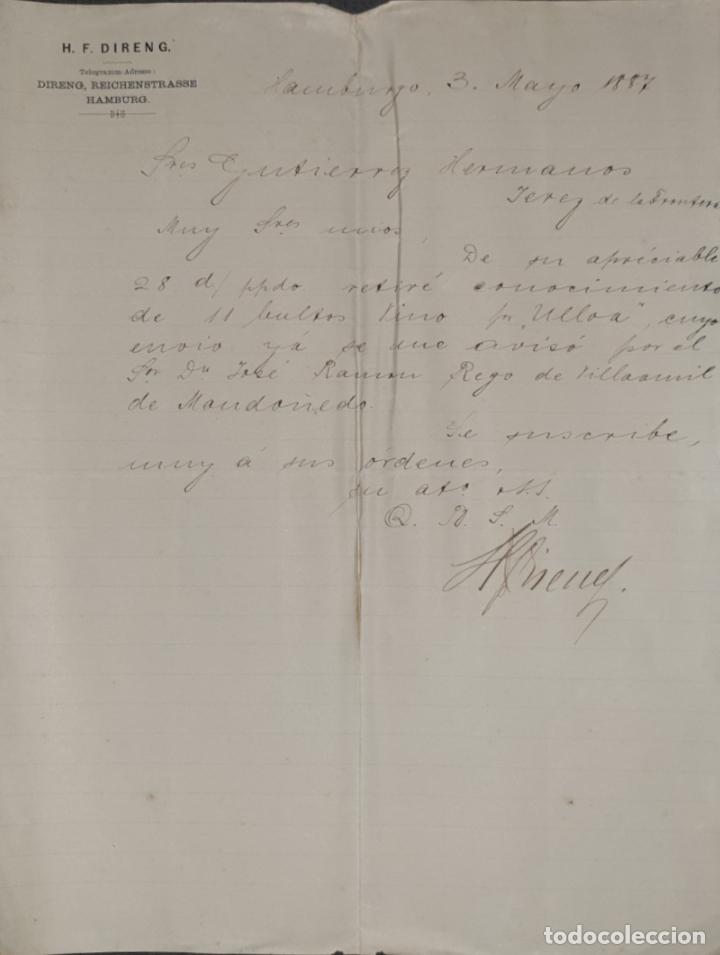 H. F. DIRENG.
Telegramm-Adresse:
DIRENG, REICHENSTRASSE
HAMBURG.
Hamburgo, 3. Mayo 1887
Sres Gutierrez Hermanos
Jerez de la Frontera
Muy Sres mios,
De su apréciable
28 d/ ppdo. retiré conocimiento
de 11 bultos Vino pr "Ulloa", cuyo
envio yá se me avisó por el
Sor Dn José Ramon Rego de Villaamil
de Mondoñedo.
Se suscribe,
muy á sus órdenes,
su ato. s.s.
Q. B. S. M.
HFDireng.
todocoleccion